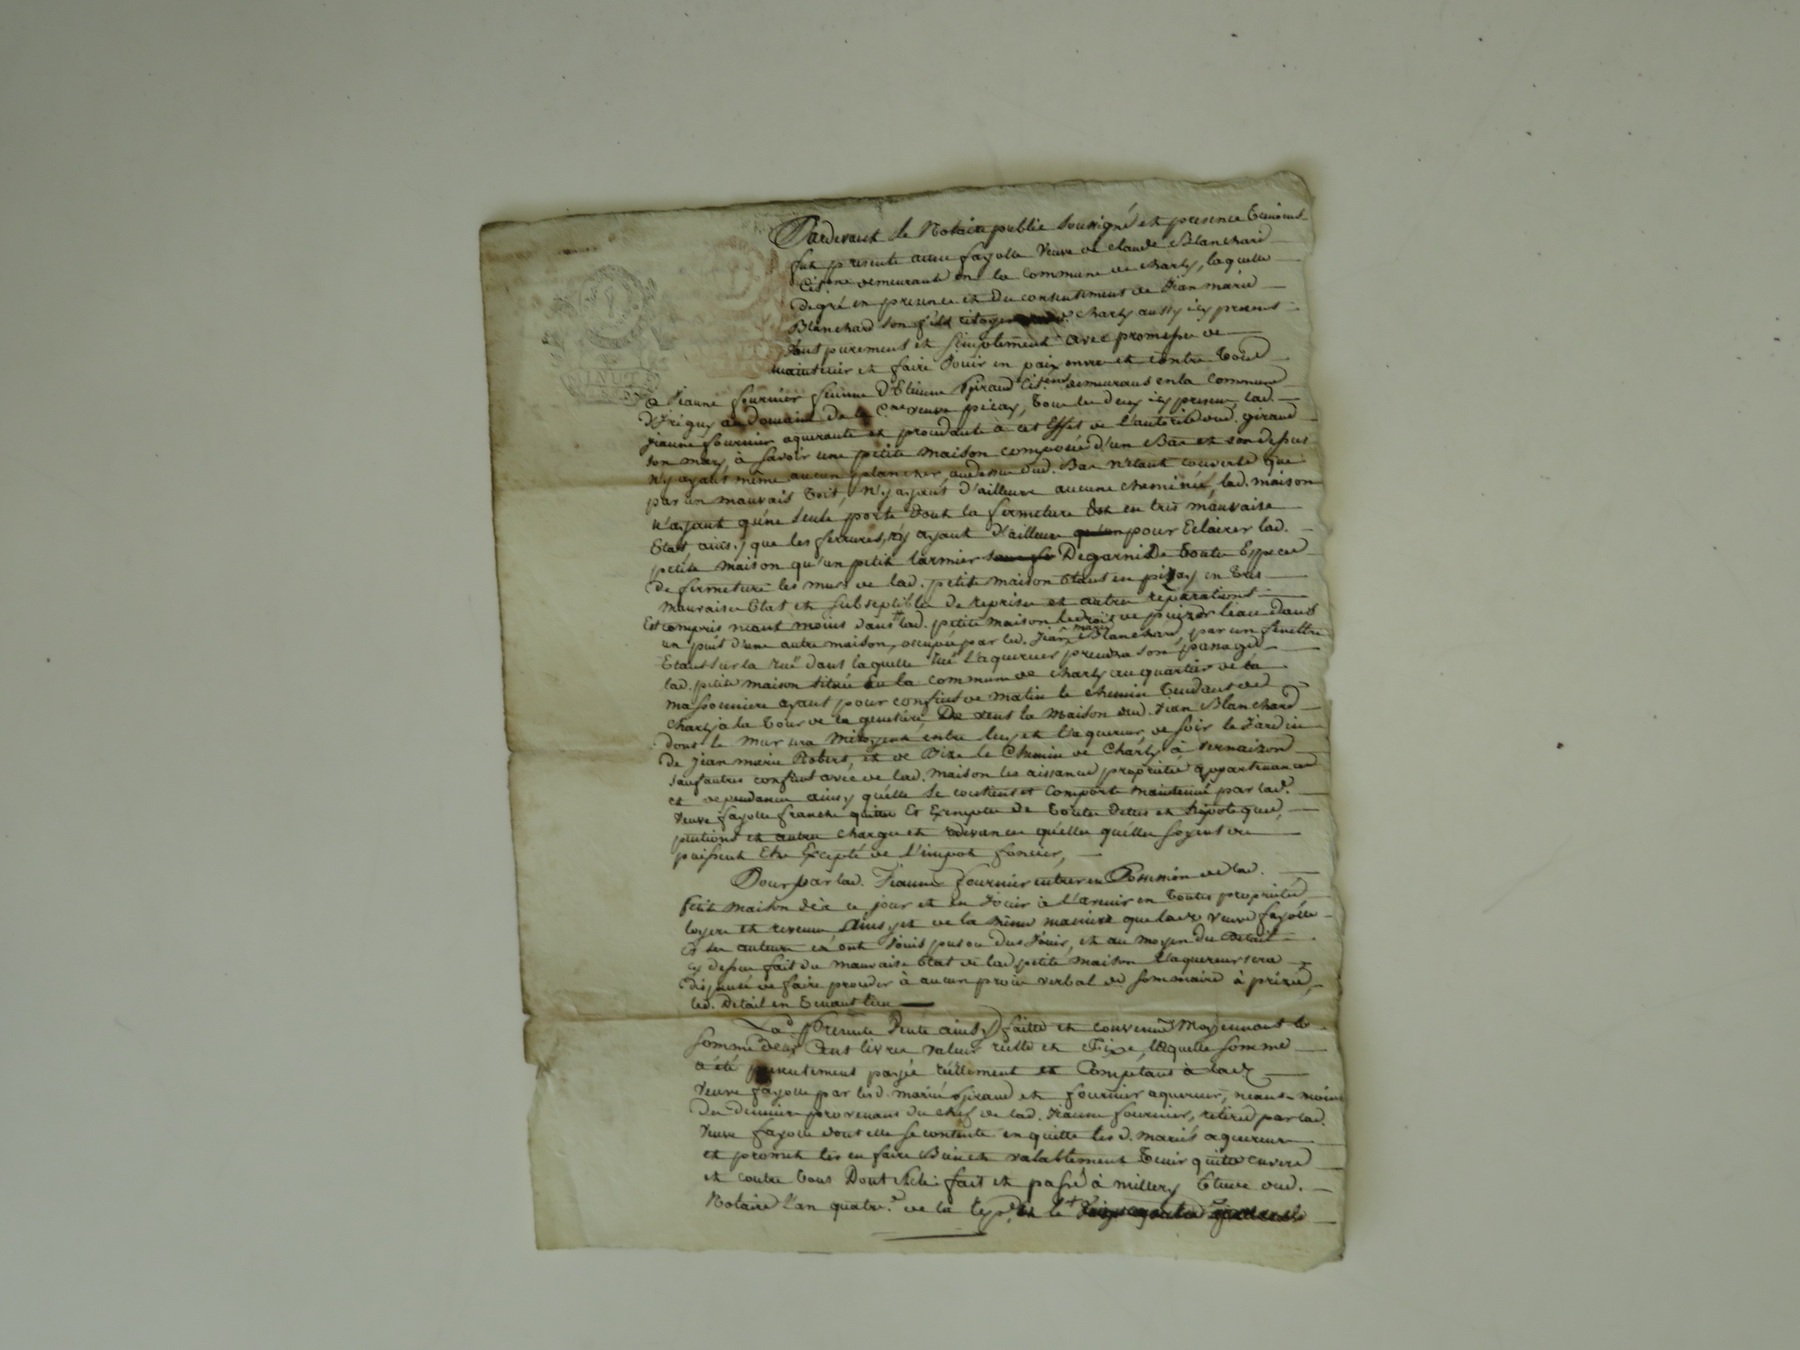 Pardevant le Notaire public soussigné et presence temoins
fut presente anne fayolle veuve de claude Blanchard
Cit.enne demeurante en la commune de charly, laquelle
de gré en presence et du consentement de Jean marie
Blanchard son fils citoyen de charly aussy icy present
tout purement et simplement avec promesse de
maintenir et faire Jouir en paix envers et contre tous
a Jeanne fournier femme d'Etienne Giraud Cit.ens demeurans en la commune
d'Irigny au domaine de la C.nne veuve pitay, tous les deux icy presens, lad.
Jeanne fournier aquerante et procedante à cet Effet de l'autorité dud. giraud
son mary, à savoir une petite maison composée d'un Bas et son dessus
n'y ayant même aucun plancher audessus dud. Bas n'etant couverte que
par un mauvais toit, n'y ayant d'ailleurs aucune cheminée, lad. maison
n'ayant qu'une seule porte dont la fermeture est en tres mauvaise
Etat ainsy que les ferrures, n'y ayant d'ailleurs pour Eclairer lad.
petite maison qu'un petit larmier Degarni De toute Espece
de fermeture les murs de lad. petite maison etant en pizay en tres
mauvaise Etat et subseptible de reprises et autres reparations
Est compris neant moins dans lad. petite maison le droit de puizer leau dans
un puit d'une autre maison, occupée par led. Jean marie Blanchard, par un fenestre
Etant sur la rue dans laquelle rue l'aquereur prendra son passage
lad. petite maison située en la commune de charly au quartier de la
massonniere ayant pour confins de matin le chemin tendant de
charly à la tour de la De vent la maison dud. Jean Blanchard
dont le mur sera mitoyent entre luy et l'aquereur, de soir le Jardin
de Jean marie Robert, et de Bize le Chemin de Charly à vernaizon
sauf autres confins avec de lad. maison les aissances proprietés appartenances
et dependances ainsy qu'elle se contient et comporte maintenue par lad.
veuve fayolle franche quitte Et Exempte de toutes dettes et hipoteques,
pentions et autres charges et redevances qu'elles quelles soyent ou
puissent Etre Excepté de l'impot foncier,
Pour par lad. Jeanne fournier entrer en Possession de lad.
Petite maison des ce jour et en Jouir à l'avenir en toutes proprietés,
loyers et revenus, Ainsy et de la même maniere que lad. veuve fayolle
Et ses auteurs en ont Jouis pu ou dus Jouir, et au moyen du Detail
cy dessus fait du mauvais Etat de lad. petite maison l'aquereur sera
dispensé de faire proceder à aucun procès verbal de sommaire à prizée,
led. Detail en tenant lieu
La Presente Vente ainsy faitte et convenue Moyennant la
somme de Cent livres valeur reelle et fixe, laquelle somme
a été presentement payée reellement et Comptant à lad.
veuve fayolle par lesd. mariés Giraud et fournier aquereurs, neant moins
des deniers provenans du chef de lad. Jeanne fournier, retirée par lad.
veuve fayolle dont elle se contente en quitte lesd. mariés aquereurs
et promet les en faire Bien et valablement tenir quitte envers
et contre tous Dont Acte: fait et passé à millery Etude dud.
Notaire l'an quatre.e de la Rep.e et le